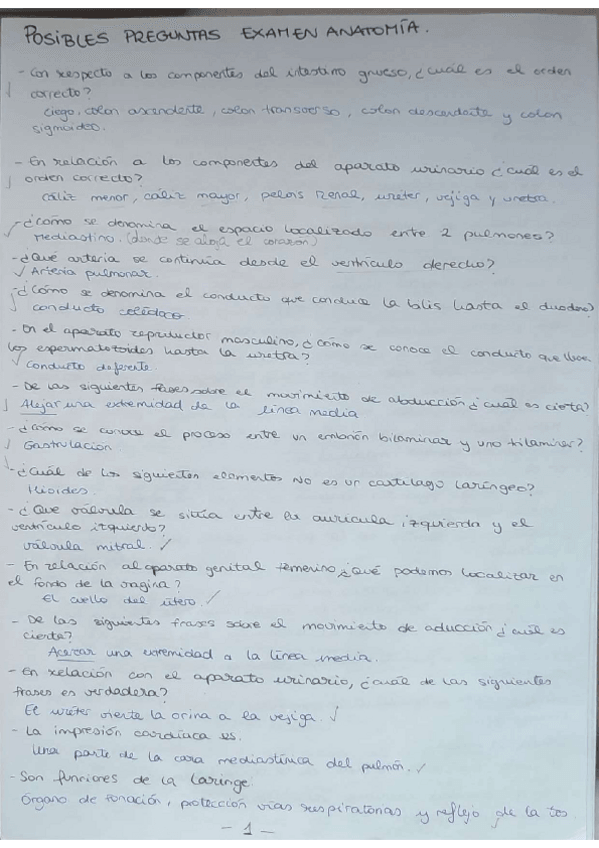 POSIBLES PREGUNTAS EXAMEN ANATOMÍA.
- Con respecto a los componentes del intestino grueso, ¿cuál es el orden
correcto?
ciego, colon ascendente, colon transverso, colon descendente y colon
sigmoideo.
- En relación a los componentes del aparato urinario ¿cuál es el
orden correcto?
cáliz menor, cáliz mayor, pelvis renal, uréter, vejiga y uretra.
- ¿Cómo se denomina el espacio localizado entre 2 pulmones?
Mediastino. (donde se aloja el corazón)
- ¿Qué arteria se continúa desde el ventrículo derecho?
Arteria pulmonar.
- ¿Cómo se denomina el conducto que conduce la bilis hasta el duodeno?
conducto colédoco
- En el aparato reproductor masculino, ¿cómo se conoce el conducto que lleva
los espermatozoides hasta la uretra?
Conducto deferente.
- De las siguientes frases sobre el movimiento de abducción ¿cuál es cierta?
Alejar una extremidad de la línea media
- ¿Cómo se conoce el proceso entre un embrión bilaminar y uno trilaminar?
Gastrulación.
- ¿Cuál de los siguientes elementos NO es un cartílago laríngeo?
Hioides.
- ¿Que válvula se sitúa entre la aurícula izquierda y el
ventrículo izquierdo?
válvula mitral. ✓
- En relación al aparato genital femenino ¿Qué podemos localizar en
el fondo de la vagina?
El cuello del útero. ✓
- De las siguientes frases sobre el movimiento de aducción ¿cuál es
cierta?
Acercar una extremidad a la línea media.
- En relación con el aparato urinario, ¿cuál de las siguientes
frases es verdadera?
El uréter vierte la orina a la vejiga. ✓
- La impresión cardíaca es.
Una parte de la cara mediastínica del pulmón. ✓
- Son funciones de la laringe
Órgano de fonación, protección vías respiratorias y reflejo de la tos.
- 1 -